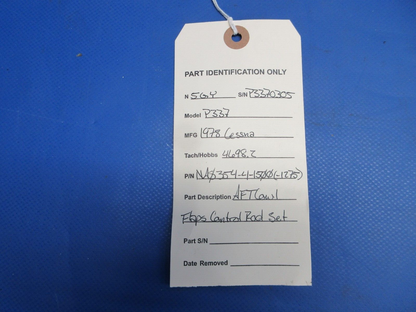 PART IDENTIFICATION ONLY
N 5GY S/N P3370305
Model P337
MFG 1978 Cessna
Tach/Hobbs 4698.2
P/N NA0354-4-1500(-1275)
Part Description AFT Cowl
Flaps Control Rod Set
Part S/N
Date Removed